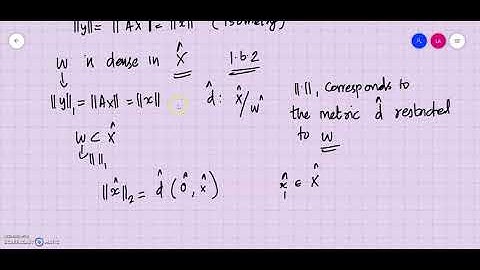 ‖y‖₁ = ‖Ax‖ = ‖x‖ (isometry)
W is dense in X̂ 1.6.2
↓
‖y‖₁ = ‖Ax‖ = ‖x‖ d̂: X̂/W ‖·‖₁ corresponds to
the metric d̂ restricted
to W
W ⊂ X̂
↳ ‖ ‖₁
‖x̂‖₂ = d̂(0̂, x̂) x̂ ∈ X̂